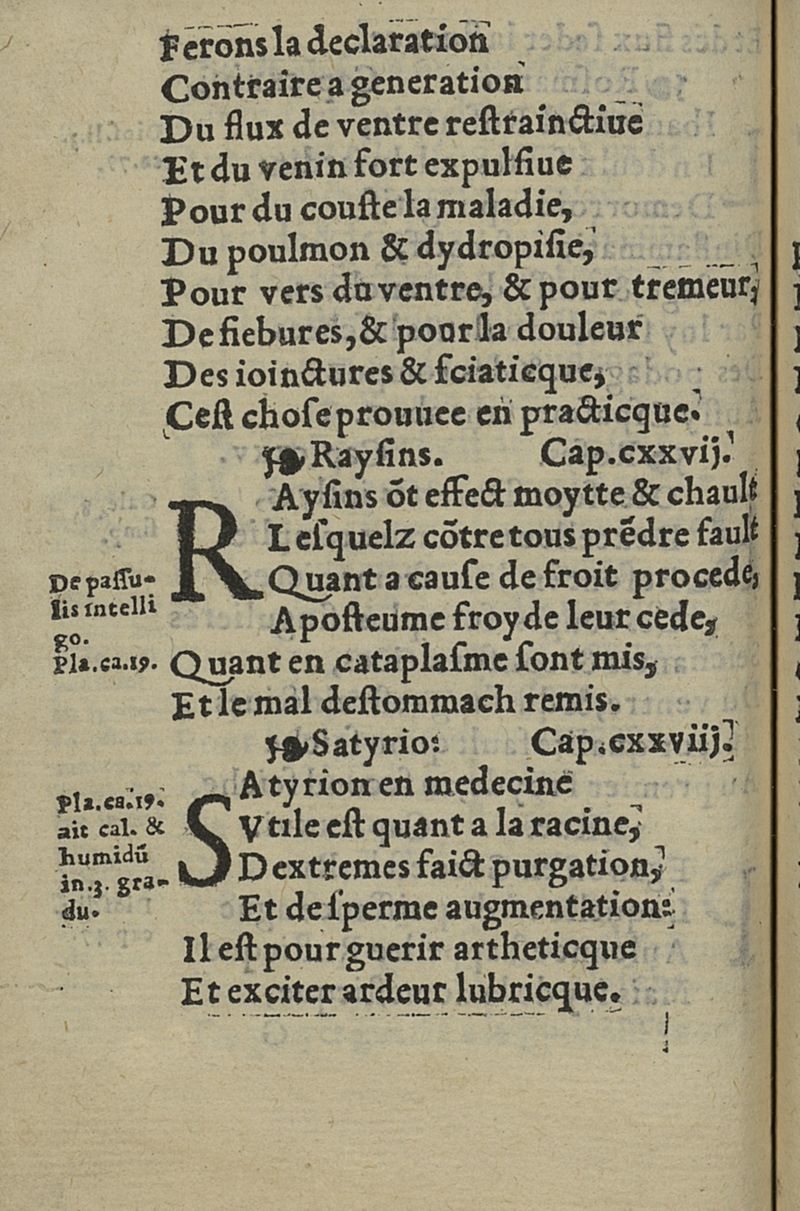 Ferons la declaration
Contraire a generation
Du flux de ventre reſtrainctiue
Et du venin fort expulſiue
Pour du couſte la maladie,
Du poulmon & dydropiſie,
Pour vers du ventre, & pour tremeur,
De fiebures, & pour la douleur
Des ioinctures & ſciaticque,
Ceſt choſe prouuee en practicque.
Rayſins. Cap.cxxvij.
RAyſins õt effect moytte & chault
Leſquelz cõtre tous prẽdre fault
Quant a cauſe de froit procede,
Apoſteume froyde leur cede,
De paſſu-
lis intelli
go.
Pla.ca.19.
Quant en cataplaſme ſont mis,
Et le mal deſtommach remis.
Satyrio: Cap.cxxviij.
SAtyrion en medecine
Vtile eſt quant a la racine,
Dextremes faict purgation,
Et de ſperme augmentation:
Pla.ca.19.
ait cal. &
humidũ
in.3. gra-
du.
Il eſt pour guerir artheticque
Et exciter ardeur lubricque.